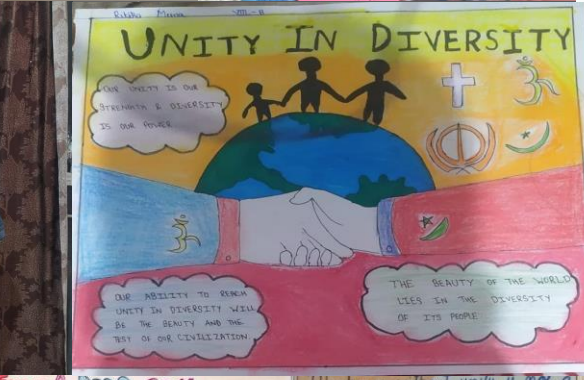 VIII - B
UNITY IN DIVERSITY
OUR UNITY IS OUR
STRENGTH & DIVERSITY
IS OUR POWER
ॐ
ॐ
OUR ABILITY TO REACH
UNITY IN DIVERSITY WILL
BE THE BEAUTY AND THE
TEST OF OUR CIVILIZATION
THE BEAUTY OF THE WORLD
LIES IN THE DIVERSITY
OF ITS PEOPLE